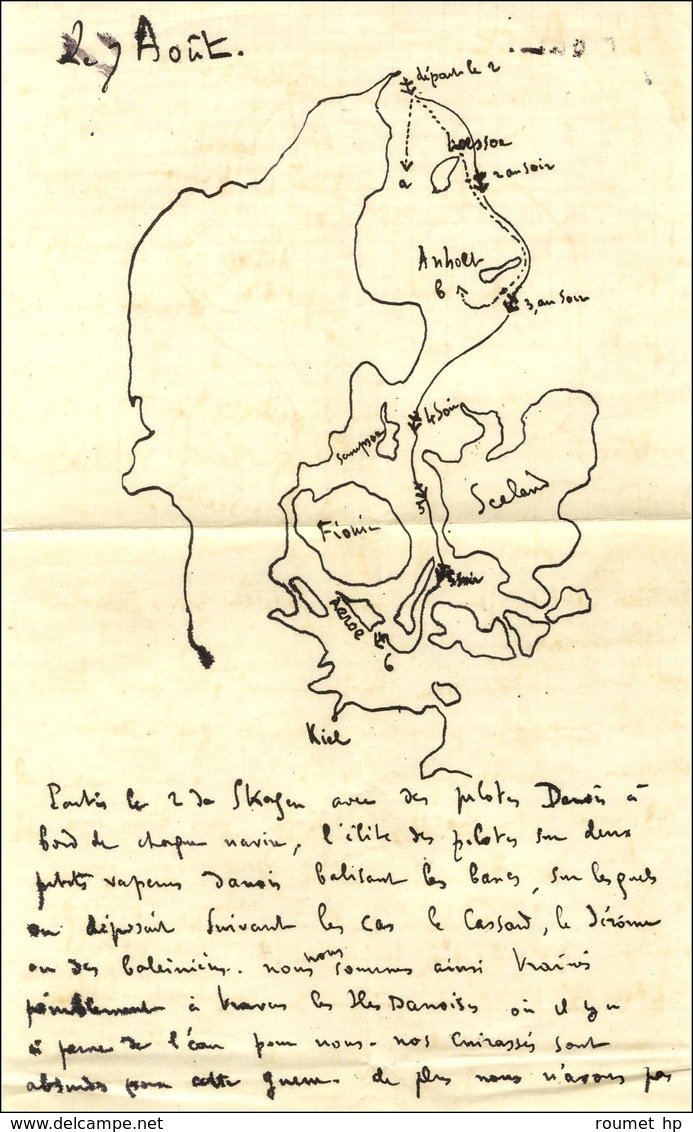 Août.
départ le 2
a
2 au soir
Anholt
b
3, au soir
4 soir
Sampsoe
Seeland
5
Fionie
5 soir
Aeroe
6
Kiel
Partis le 2 de Skagen avec des pilotes Danois à
bord de chaque navire, l'élite des pilotes sur deux
petits vapeurs danois balisant les bancs, sur lesquels
on déposait suivant les cas le Cassard, le Jérôme
ou des baleinières. nous nous sommes ainsi trainés
péniblement à travers les Iles Danoises où il y a
à peine de l'eau pour nous. nos cuirassés sont
absurdes pour cette guerre. de plus nous n'avons pas
roumet hp